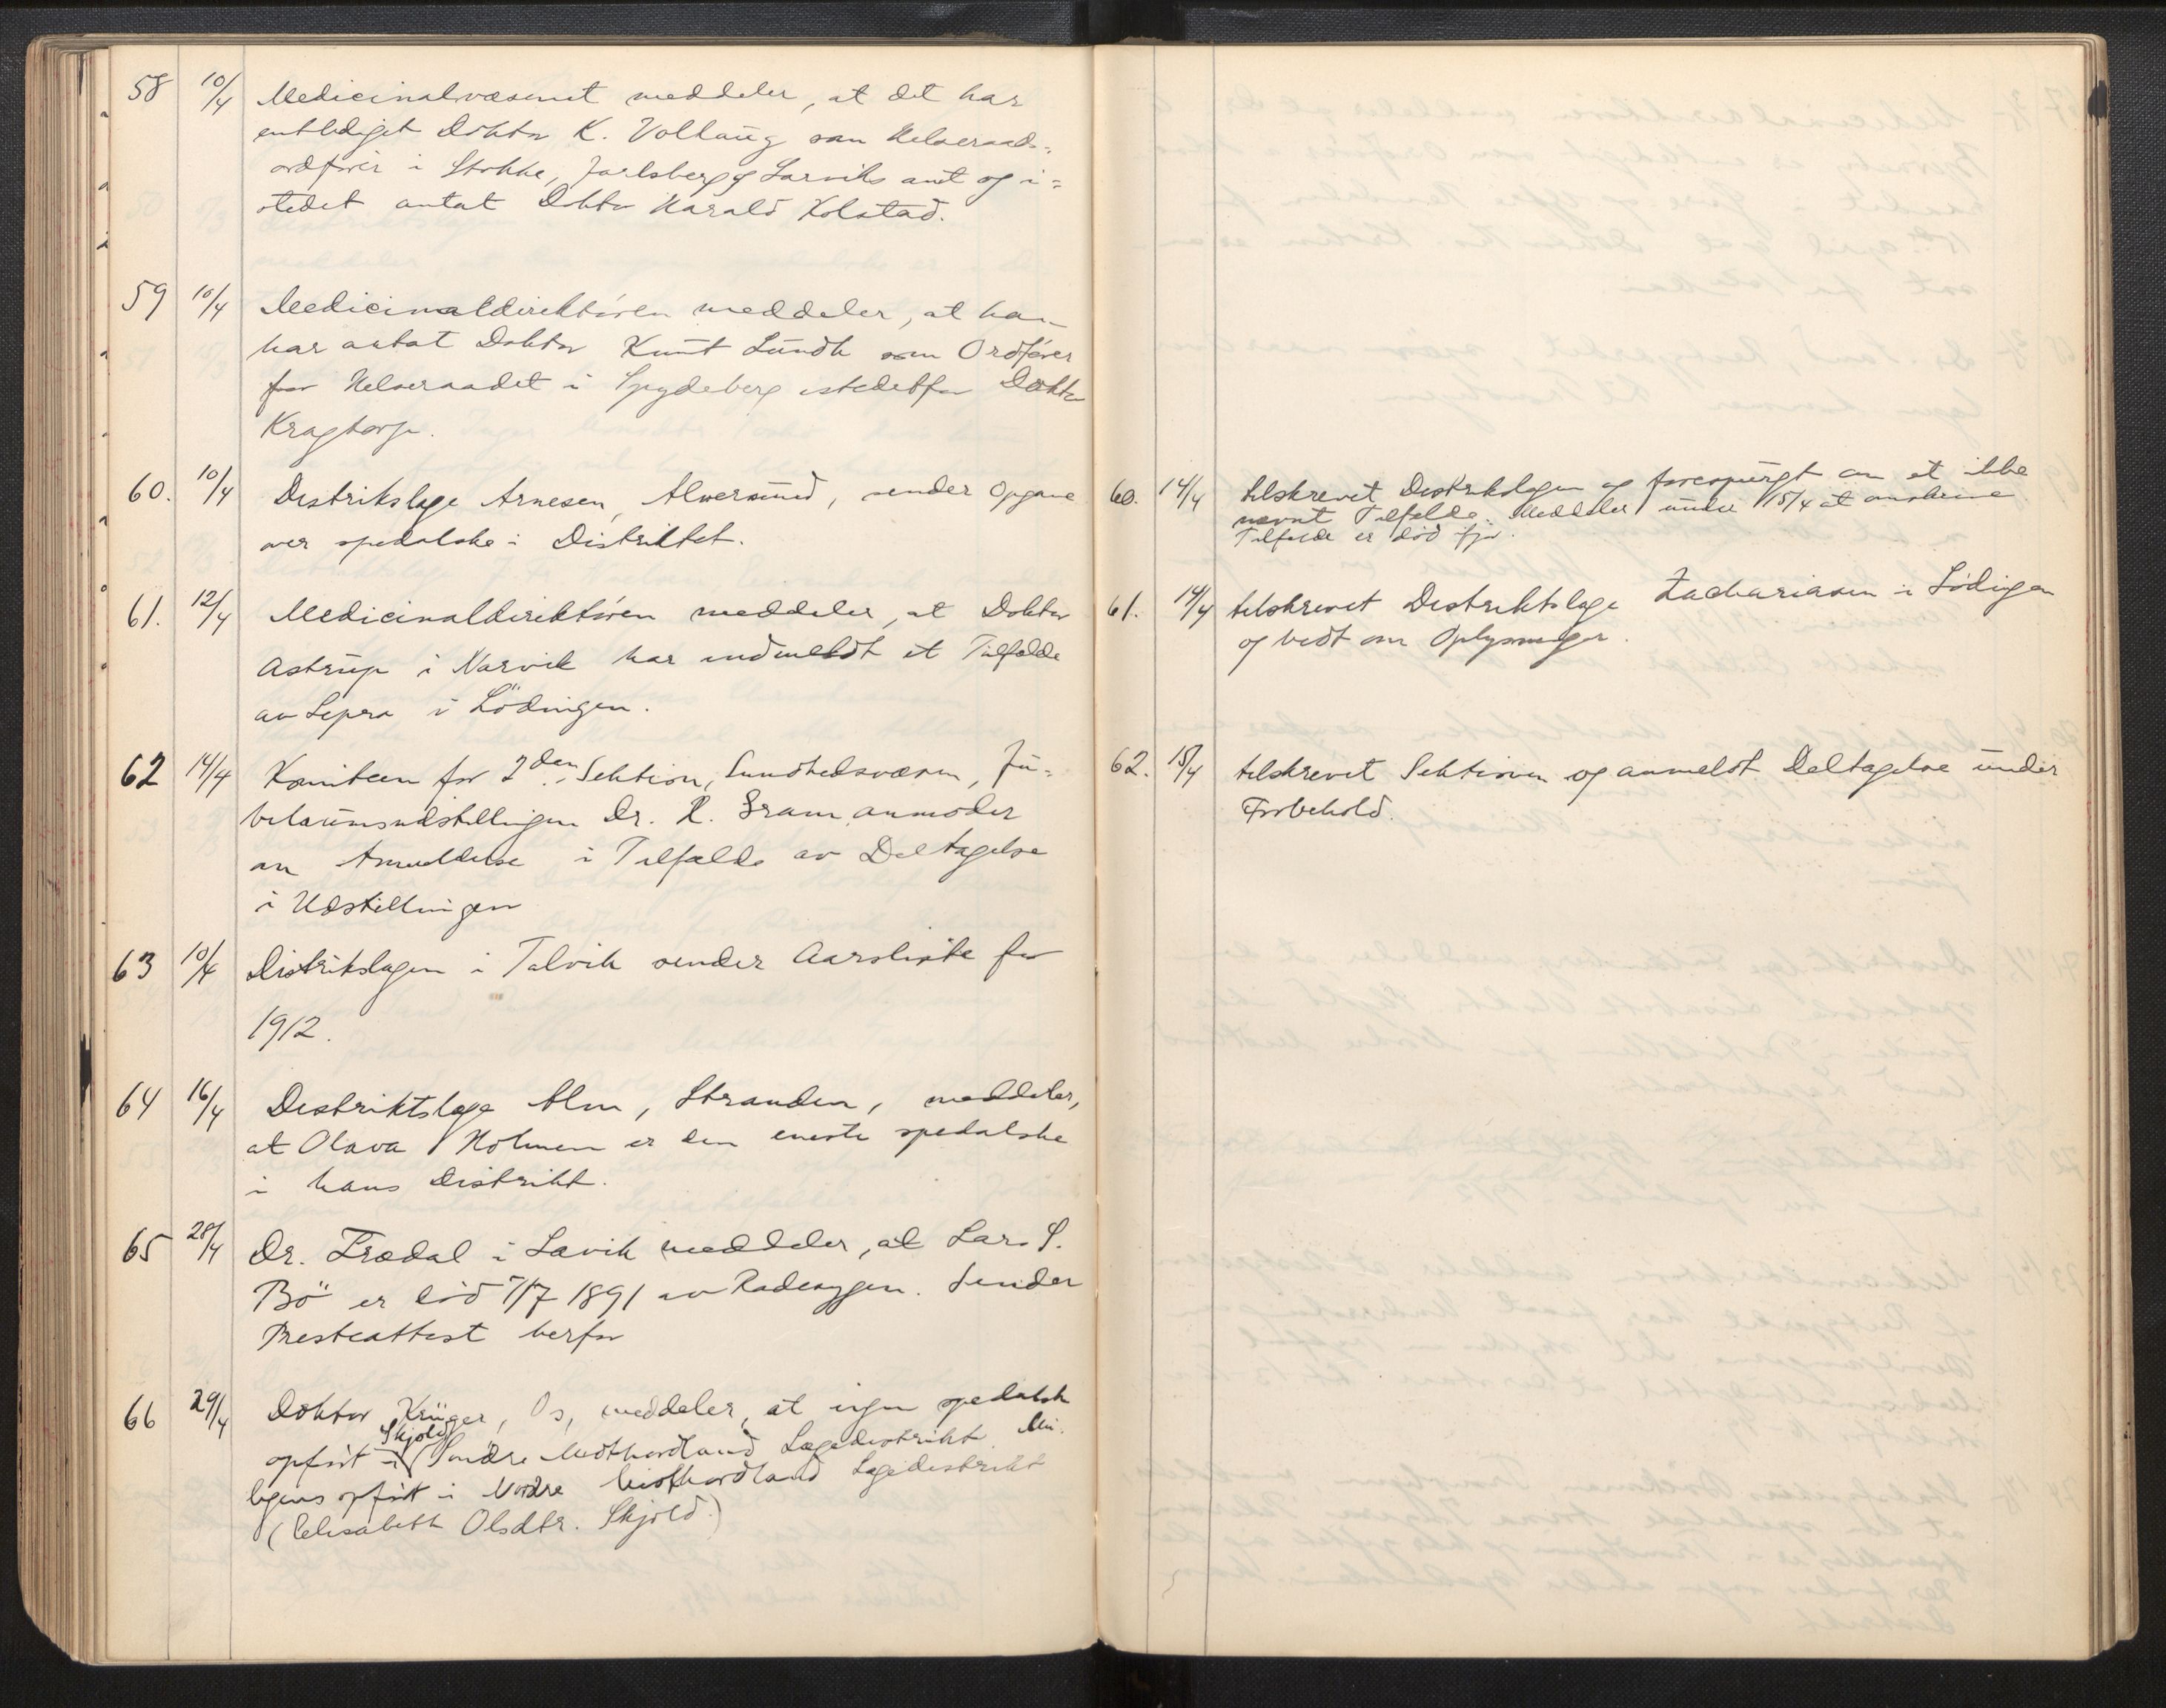 58 10/4 Medicinalvæsenet meddeler, at det har
entlediget Doktor K. Vollaug som Helseraads-
ordfører i Stokke, Jarlsberg og Larviks amt og i=
stedet antat Doktor Harald Kolstad.
59 10/4 Medicinaldirektøren meddeler, at han
har antat Doktor Knut Lundh som Ordfører
for Helseraadet i Spydeberg istedetfor Doktor
Kragtorp.
60. 10/4 Distrikslæge Arnesen, Alversund, sender Opgave
over spedalske i Distriktet.
61. 12/4 Medicinaldirektøren meddeler, at Doktor
Astrup i Narvik har indmeldt et Tilfælde
av Lepra i Lödingen.
62 14/4 Komiteen for 2den Sektion, Sundhedsvæsen, Ju=
belæumsudstillingen Dr. R. Gram anmoder
om Anmeldelse i Tilfælde av Deltagelse
i Udstillingen
63 10/4 Distrikslægen i Talvik sender Aarsliste for
1912.
64 16/4 Distriktslæge Alm, Stranden, meddeler,
at Olava Holmen er den eneste spedalske
i hans Distrikt.
65 28/4 Dr. Trædal i Lavik meddeler, at Lars S.
Bö er död 7/7 1891 av Radesygen. Sender
Presteattest herfor
66 29/4 Doktor Krüger, Os, meddeler, at ingen spedalsk
Skjold
opfört i Søndre Midthordland Lægedistrikt. Mu-
ligens opført i Nordre Midthordland Lægedistrikt
(Elisabeth Olsdtr. Skjold.)
60. 14/4 tilskrevet Distriktslægen og forespurgt om et ikke
nævnt Tilfælde. Meddeler under 15/4 at omskrevne
Tilfælde er död ifjor.
61. 14/4 tilskrevet Distriktslæge Zachariasen i Lödingen
og bedt om Oplysninger.
62. 15/4 tilskrevet Sektionen og anmeldt Deltagelse under
Forbehold.